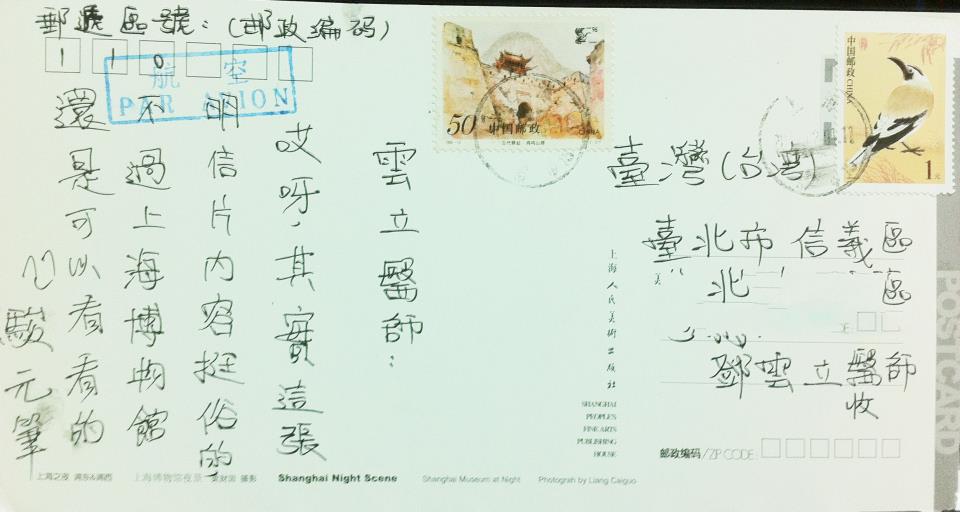 郵遞區號：(郵政編码)
110
航空
PAR AVION
雲立醫師：
哎呀，其實這張
明信片内容挺俗的
不過上海博物館
還是可以看看的
駿元筆
50分
中国邮政
CHINA
中国邮政
CHINA
1元
臺灣(台湾)
臺北市信義區
北
區
鄧雲立醫師
收
上海人民美術出版社
SHANGHAI
PEOPLE'S
FINE ARTS
PUBLISHING
HOUSE
邮政编码/ZIP CODE:
POSTCARD
上海之夜 浦东&浦西
上海博物馆夜景
摄影
Shanghai Night Scene
Shanghai Museum at Night
Photograph by Liang Caiguo